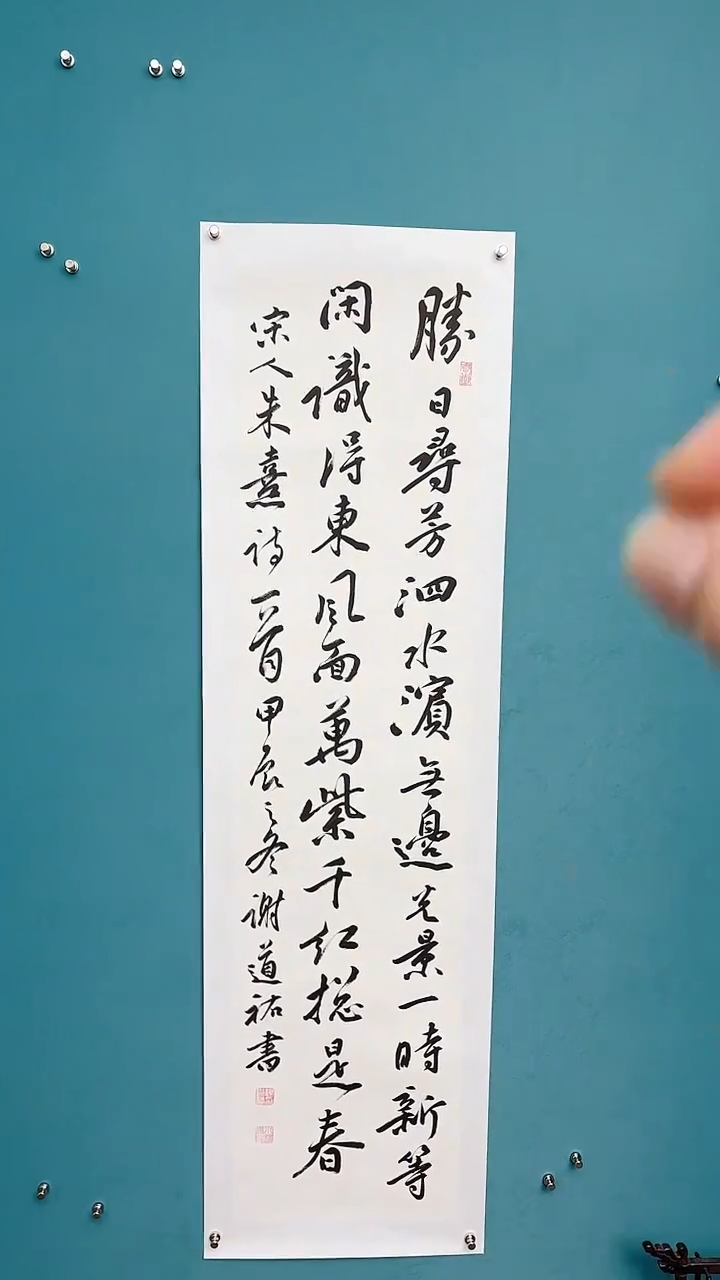 勝日尋芳泗水濱無邊光景一時新等
閑識得東風面萬紫千红揔是春
宋人朱熹诗一首甲辰之冬谢道祐書